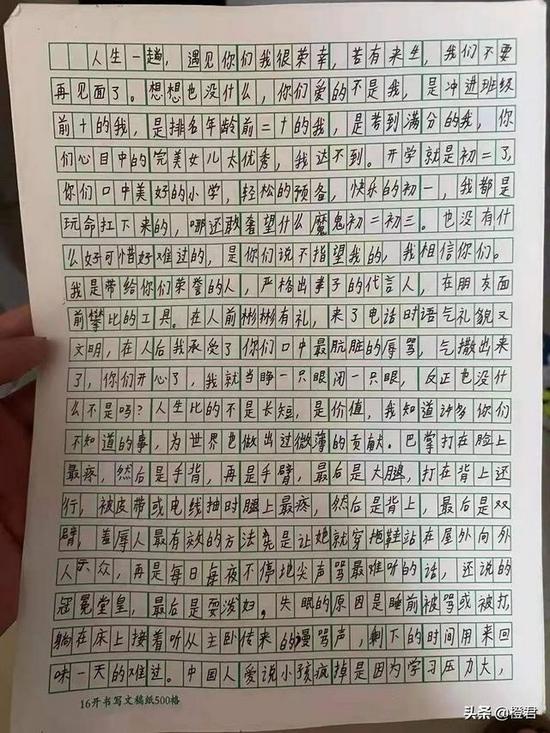 人生一趟，遇见你们我很荣幸，若有来生，我们不要
再见面了。想想也没什么，你们爱的不是我，是冲进班级
前十的我，是排名年龄前二十的我，是考到满分的我，你
们心目中的完美女儿太优秀，我达不到。开学就是初二了，
你们口中美好的小学，轻松的预备，快乐的初一，我都是
玩命扛下来的，哪还敢奢望什么魔鬼初二初三。也没有什
么好可惜好难过的，是你们说不指望我的，我相信你们。
我是带给你们荣誉的人，严格出事子的代言人，在朋友面
前攀比的工具。在人前彬彬有礼，来了电话时语气礼貌又
文明，在人后我承受了你们口中最肮脏的辱骂，气撒出来
了，你们开心了，我就当睁一只眼闭一只眼，反正也没什
么不是吗？人生比的不是长短，是价值，我知道许多你们
不知道的事，为世界也做出过微薄的贡献。巴掌打在脸上
最疼，然后是手背，再是手臂，最后是大腿，打在背上还
行，被皮带或电线抽时腿上最疼，然后是背上，最后是双
臂，羞辱人最有效的方法竟是让她就穿拖鞋站在屋外向外
人示众，再是每日每夜不停地尖声骂最难听的话，还说的
冠冕堂皇，最后是耍泼妇。失眠的原因是睡前被骂或被打，
躺在床上接着听从主卧传来的谩骂声，剩下的时间用来回
味一天的难过。中国人爱说小孩疯掉是因为学习压力大，
16开书写文稿纸500格
头条 @橙君